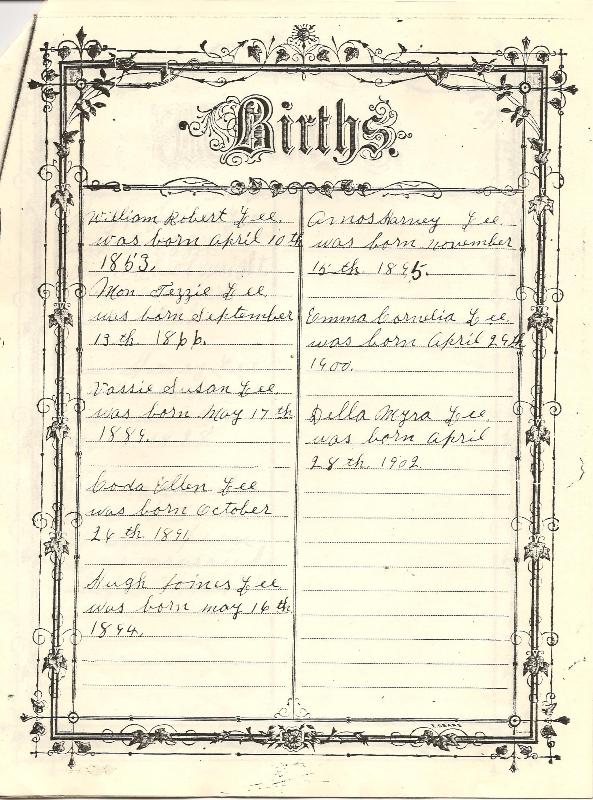 Births.
William Robert Lee
was born April 10th
1863.
Mon Tezzie Lee
was born September
13th 1866.
Vassie Susan Lee
was born May 17th
1889.
Coda Ellen Lee
was born October
26th 1891
Hugh James Lee
was born May 16th
1894.
Amos Harvey Lee
was born November
15th 1895.
Emma Cornelia Lee
was born April 29th
1900.
Della Myra Lee
was born April
28th 1902